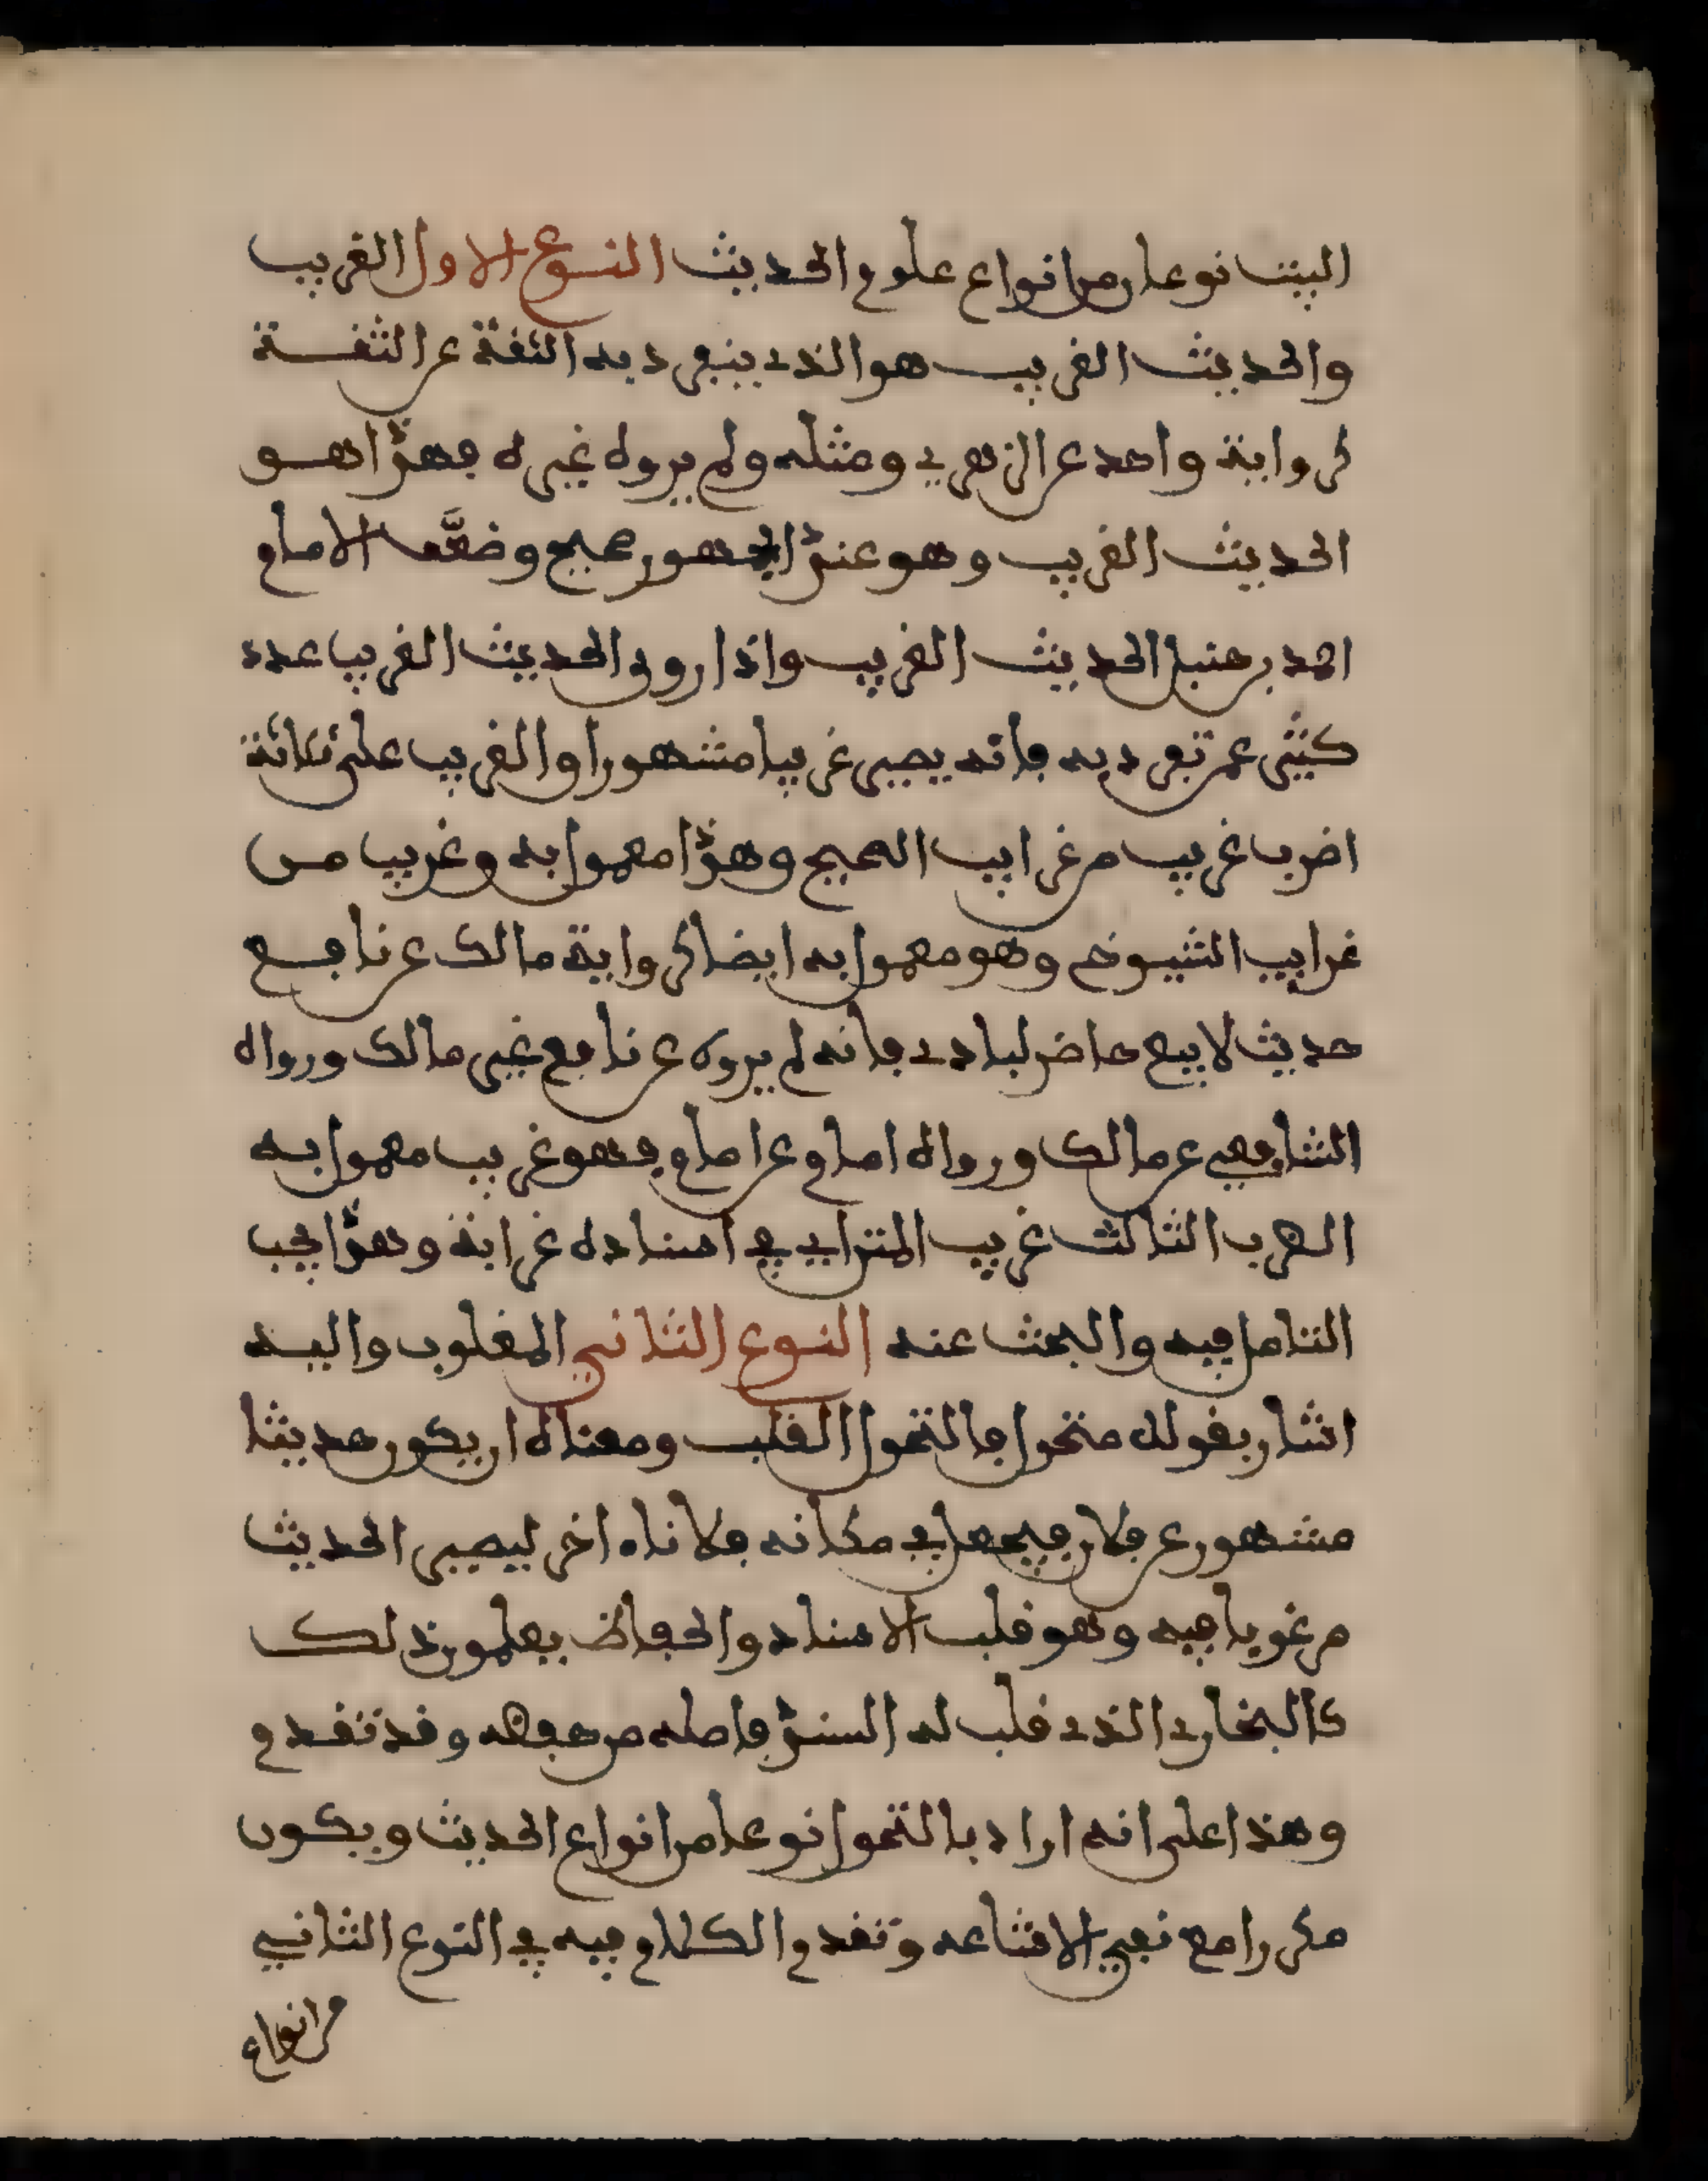 البيت نوعان من انواع علوم الحديث النوع الاول الغريب
والحديث الغريب هو الذي ينفرد به الثقة عن الثقة
كرواية واحد عن الزهري ومثله ولم يروه غيره فهذا هو
الحديث الغريب وهو عند الجمهور صحيح وضعَّف الامام
احمد بن حنبل الحديث الغريب واذا روى الحديث الغريب عدد
كثير عمن تفرد به فانه يصير غريبا مشهورا والغريب على ثلاثة
اضرب غريب من غرايب الصحيح وهذا معمول به وغريب من
غرايب الشيوخ وهو معمول به ايضا كرواية مالك عن نافع
حديث لا يبع حاضر لباد فانه لم يروه عن نافع غير مالك ورواه
الشافعي عن مالك ورواه امام عن امام فهو غريب معمول به
الضرب الثالث غريب المتن اي في اسناده غرابة وهذا يجب
التامل فيه والبحث عنه النوع الثاني المقلوب واليه
اشار بقوله متحول فالتحول القلب ومعناه ان يكون حديثا
مشهور عن فلان فيجعل في مكانه فلانا اخر ليصير الحديث
مرغوبا فيه وهو قلب الاسناد والحفاظ يعلمون ذلك
كالبخاري الذي قلب له السند فاصله من حفظه وقد تقدم
وهذا على انه اراد بالتحول نوعا من انواع الحديث ويكون
مكررا مع نفي الاشاعه وتقدم الكلام فيه في النوع الثاني
من انواع